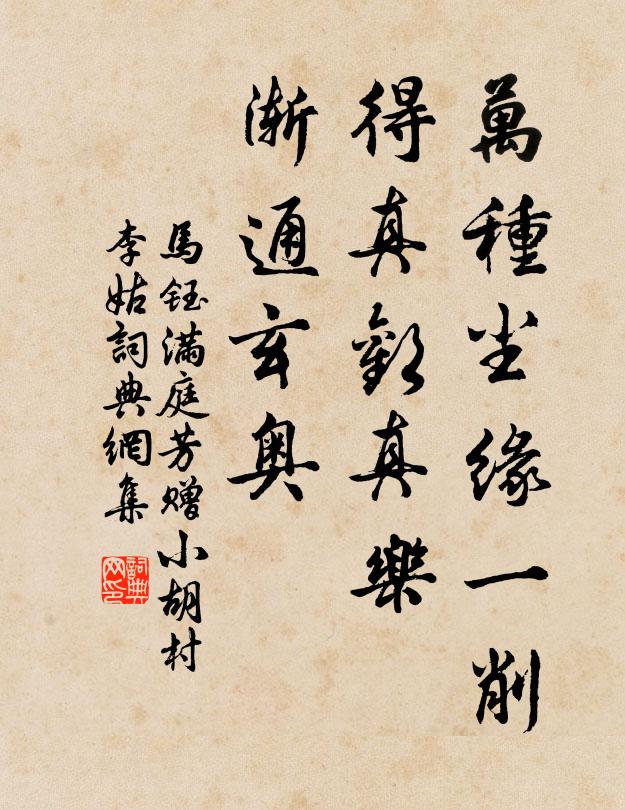 萬種尘緣一削
得真歡真樂
漸通玄奥
馬鈺满庭芳赠小胡村
李姑詞典網集
詞典网印